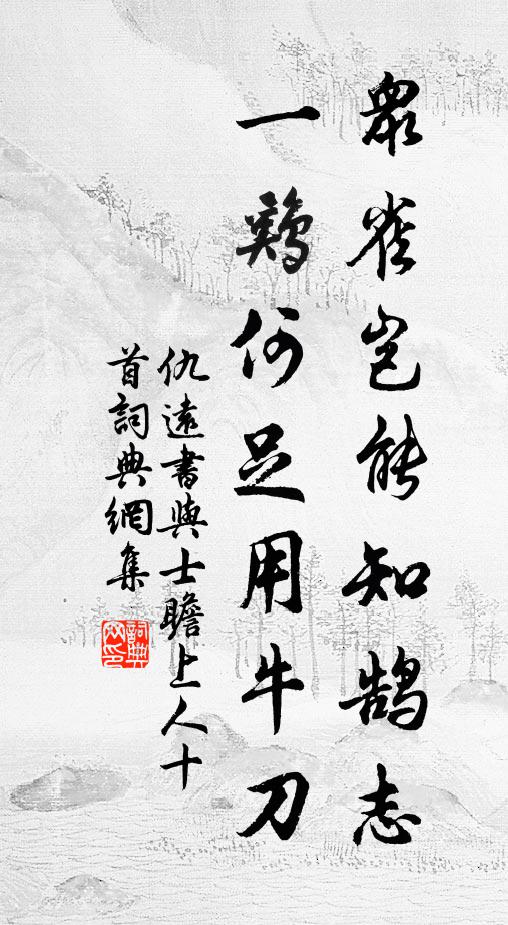 眾雀豈能知鵠志
一鷄何足用牛刀
仇遠書與士瞻上人十
首詞典網集
詞典
网印